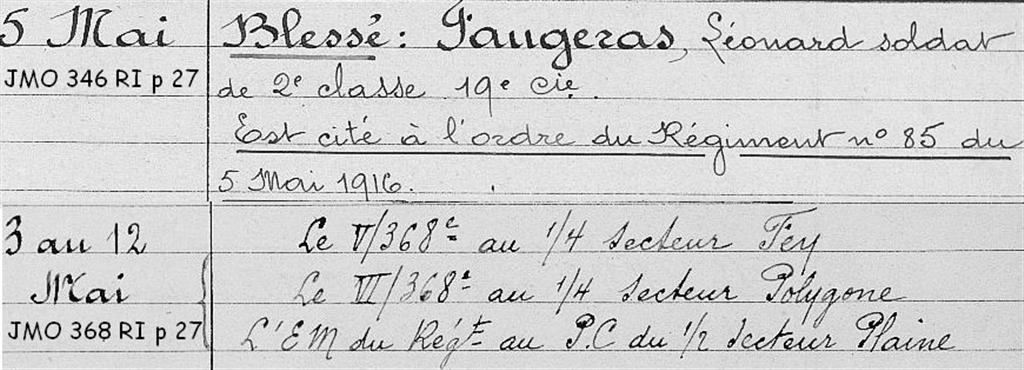 5 Mai Blessé: Faugeras, Léonard soldat
JMO 346 RI p 27 de 2e classe 19e Cie.
Est cité à l'ordre du Régiment no 85 du
5 Mai 1916.
3 au 12 Le V/368e au 1/4 Secteur Fey
Mai Le VI/368e au 1/4 Secteur Polygone
JMO 368 RI p 27 L'EM du Régt au P.C du 1/2 Secteur Plaine